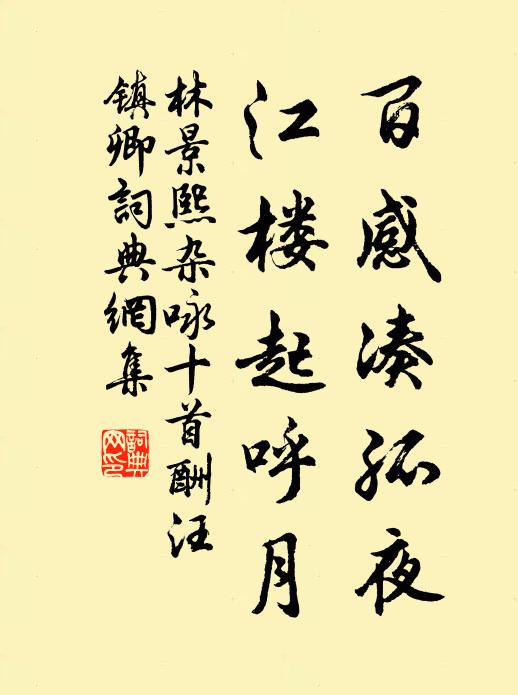 百感凑孤夜
江楼起呼月
林景熙杂咏十首酬汪
镇卿詞典網集
詞典網印